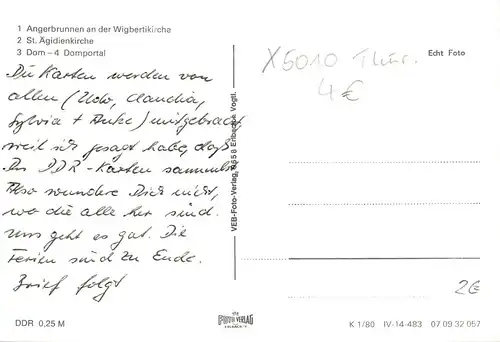 1 Angerbrunnen an der Wigbertikirche
2 St. Ägidienkirche
3 Dom – 4 Domportal
Echt Foto
X5010 Thür.
4€
Die Karten werden von
allen (Udo, Claudia,
Sylvia + Anke) mitgebracht,
weil ich gesagt habe, daß
Du DDR-Karten sammelst.
Also wundere Dich nicht,
wo die alle her sind.
Uns geht es gut. Die
Ferien sind zu Ende.
Brief folgt
VEB-Foto-Verlag, 9658 Erlbach Vogtl.
2€
DDR 0,25 M
FOTO VERLAG
ERLBACH
K 1/80 IV-14-483 07 09 32 057